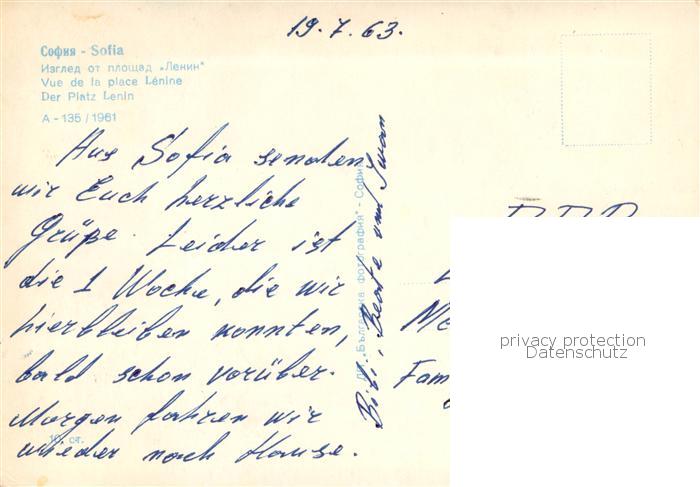 19.7.63.
София - Sofia
Изглед от площад „Ленин"
Vue de la place Lénine
Der Platz Lenin
A - 135 / 1961
Aus Sofia senden
wir Euch herzliche
Grüße. Leider ist
die 1 Woche, die wir
hierbleiben konnten,
bald schon vorüber.
Morgen fahren wir
wieder nach Hause.
Bibi, Beate und Iwan
"Българска фотография" - София
10 ст.
DDR
Fam
privacy protection
Datenschutz